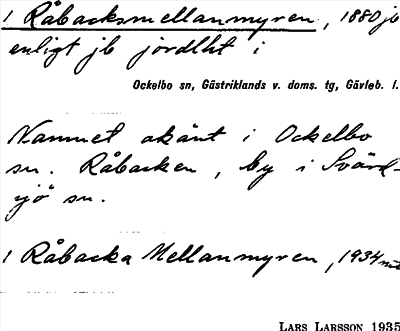 1 Råbacksmellanmyren, 1880 jb
enligt jb jordlht i
Ockelbo sn, Gästriklands v. doms. tg, Gävleb. l.
Namnet okänt i Ockelbo
sn. Råbacken, by i Svärd-
sjö sn.
1 Råbacka Mellanmyren, 1934
LARS LARSSON 1935